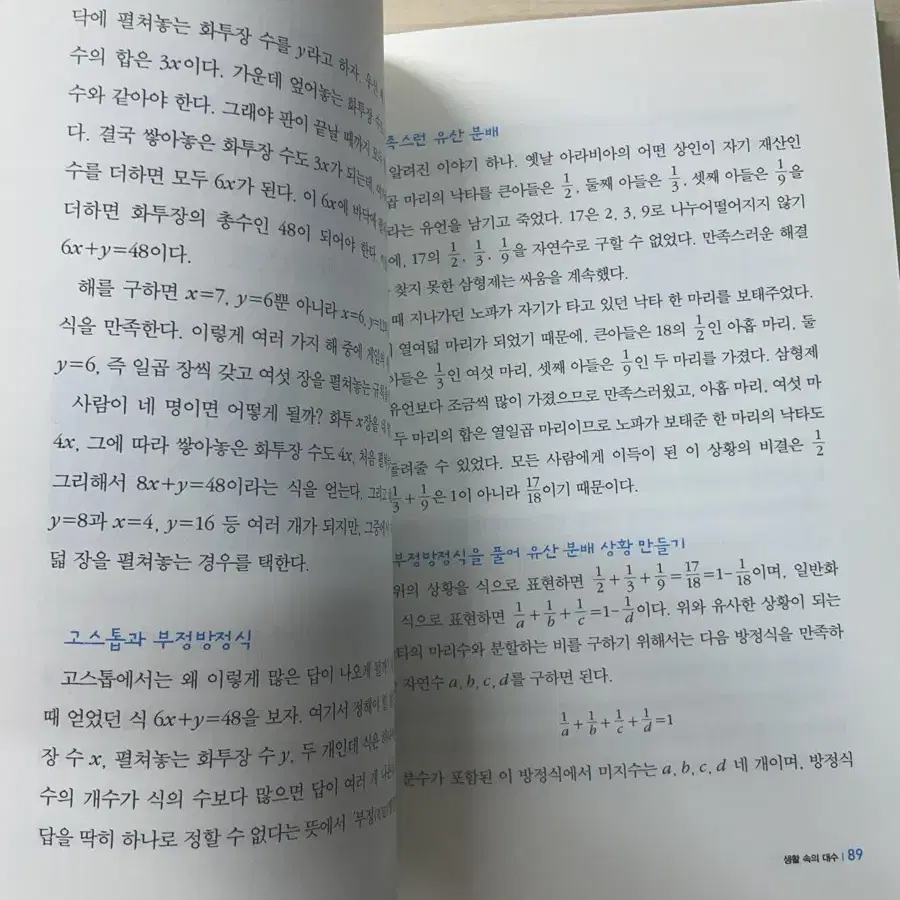 닥에 펼쳐놓는 화투장 수를 y라고 하자. 우선
수의 합은 3x이다. 가운데 엎어놓는 화투장 수는
수와 같아야 한다. 그래야 판이 끝날 때까지 모두
다. 결국 쌓아놓은 화투장 수도 3x가 되는데,
수를 더하면 모두 6x가 된다. 이 6x에 바닥에
더하면 화투장의 총수인 48이 되어야 한다.
6x+y=48이다.
해를 구하면 x=7, y=6뿐 아니라 x=6, y=12
식을 만족한다. 이렇게 여러 가지 해 중에 게임의
y=6, 즉 일곱 장씩 갖고 여섯 장을 펼쳐놓는 규칙을
사람이 네 명이면 어떻게 될까? 화투 x장을
4x, 그에 따라 쌓아놓은 화투장 수도 4x, 처음
그리해서 8x+y=48이라는 식을 얻는다. 그리고
y=8과 x=4, y=16 등 여러 개가 되지만, 그중에서
덟 장을 펼쳐놓는 경우를 택한다.
고스톱과 부정방정식
고스톱에서는 왜 이렇게 많은 답이 나오게 될까?
때 얻었던 식 6x+y=48을 보자. 여기서 정해야 할
장 수 x, 펼쳐놓는 화투장 수 y, 두 개인데 식은 하나
수의 개수가 식의 수보다 많으면 답이 여러 개
답을 딱히 하나로 정할 수 없다는 뜻에서 '부정
족스런 유산 분배
알려진 이야기 하나. 옛날 아라비아의 어떤 상인이 자기 재산인
곱 마리의 낙타를 큰아들은 1/2, 둘째 아들은 1/3, 셋째 아들은 1/9을
라는 유언을 남기고 죽었다. 17은 2, 3, 9로 나누어떨어지지 않기
에, 17의 1/2, 1/3, 1/9을 자연수로 구할 수 없었다. 만족스러운 해결
찾지 못한 삼형제는 싸움을 계속했다.
때 지나가던 노파가 자기가 타고 있던 낙타 한 마리를 보태주었다.
열여덟 마리가 되었기 때문에, 큰아들은 18의 1/2인 아홉 마리, 둘
아들은 1/3인 여섯 마리, 셋째 아들은 1/9인 두 마리를 가졌다. 삼형제
유언보다 조금씩 많이 가졌으므로 만족스러웠고, 아홉 마리, 여섯 마
두 마리의 합은 열일곱 마리이므로 노파가 보태준 한 마리의 낙타도
돌려줄 수 있었다. 모든 사람에게 이득이 된 이 상황의 비결은 1/2
1/3+1/9은 1이 아니라 17/18이기 때문이다.
부정방정식을 풀어 유산 분배 상황 만들기
위의 상황을 식으로 표현하면 1/2+1/3+1/9=17/18=1-1/18이며, 일반화
식으로 표현하면 1/a+1/b+1/c=1-1/d이다. 위와 유사한 상황이 되는
타의 마리수와 분할하는 비를 구하기 위해서는 다음 방정식을 만족하
자연수 a, b, c, d를 구하면 된다.
1/a+1/b+1/c+1/d=1
분수가 포함된 이 방정식에서 미지수는 a, b, c, d 네 개이며, 방정식
생활 속의 대수 | 89